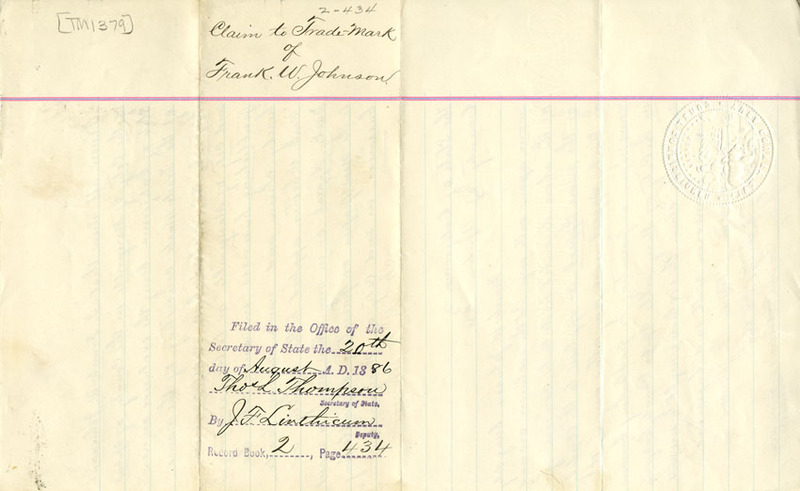 [TM1379]
2-434
Claim to Trade-Mark
of
Frank. W. Johnson.
Filed in the Office of the
Secretary of State the 20th
day of August A. D. 1886
Thos L. Thompson
Secretary of State.
By J F Linthicum
Deputy.
Record Book, 2, Page 434